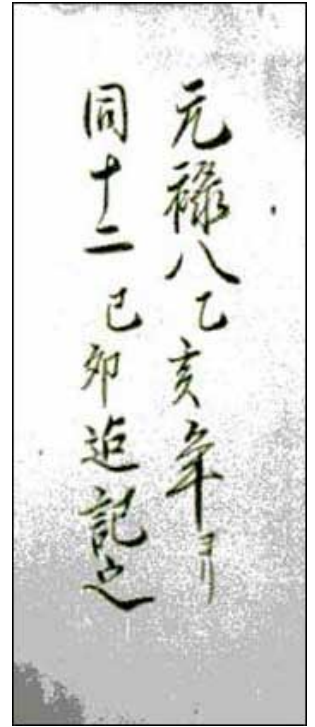 元禄八乙亥年ヨリ
同十二己卯迠記之